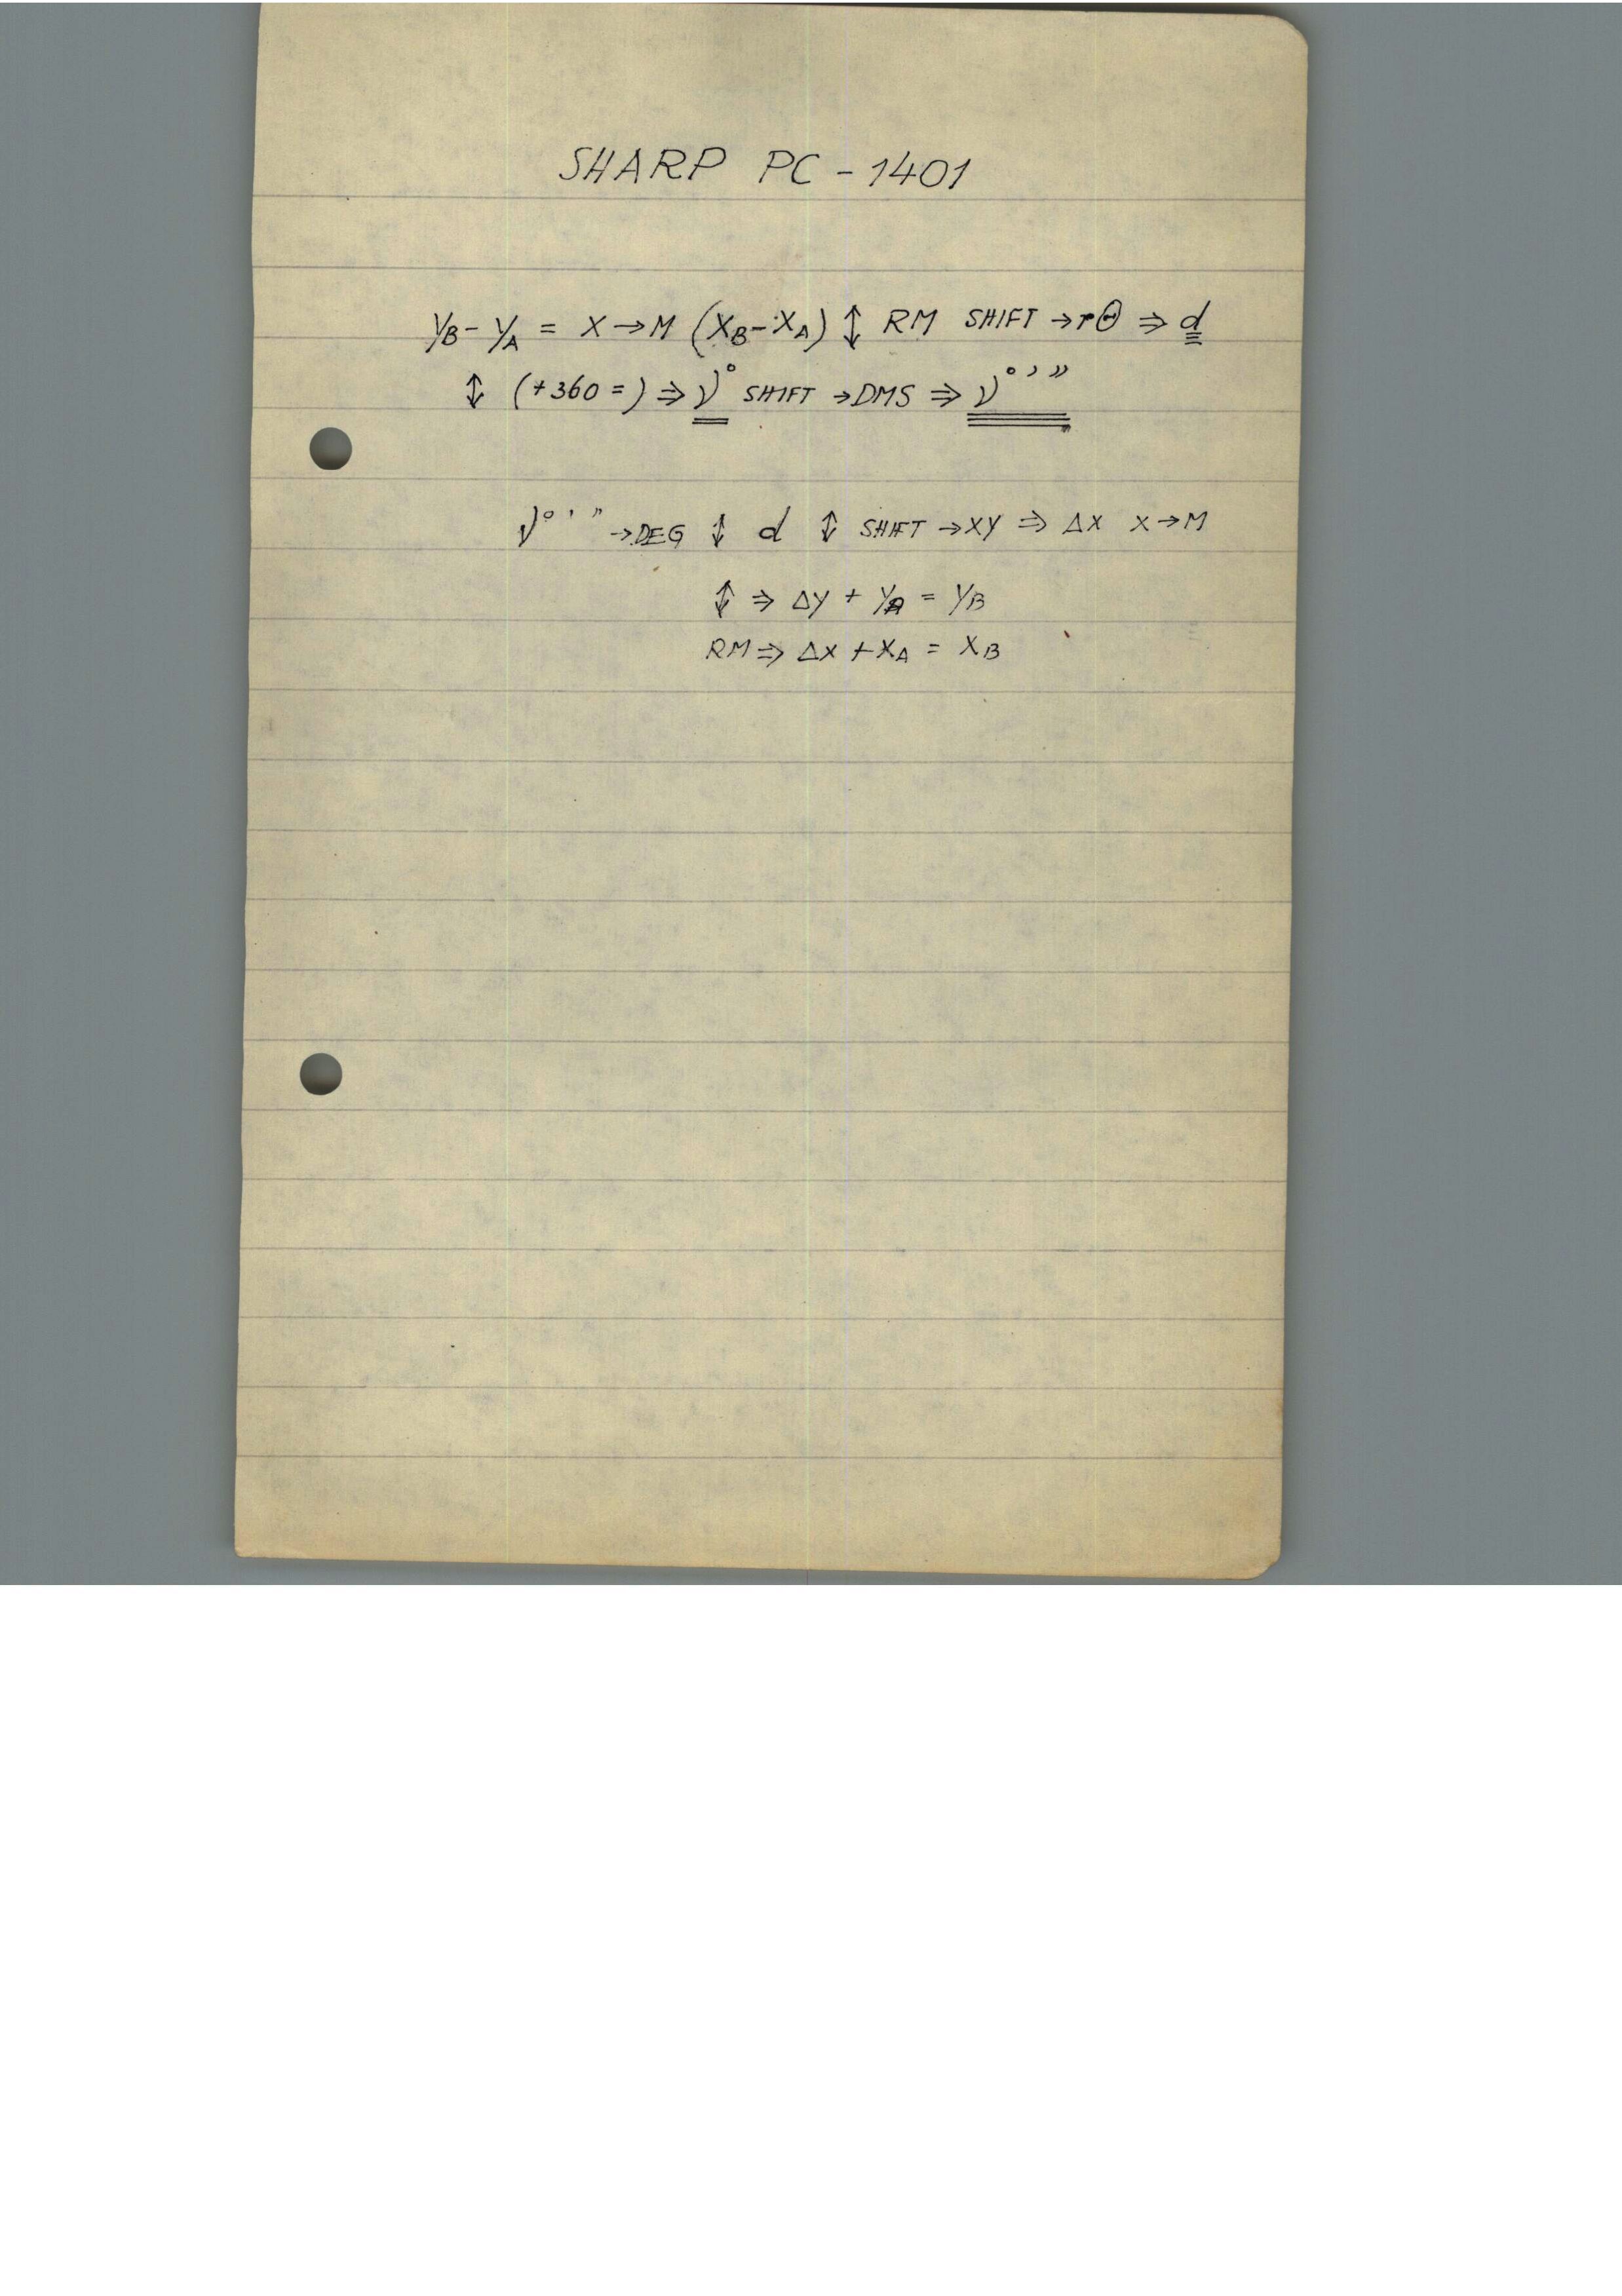 SHARP PC - 1401
YB - YA = X → M (XB - XA) ↕ RM SHIFT → rΘ ⇒ d
↕ (+360 =) ⇒ ν° SHIFT → DMS ⇒ ν° ' "
ν° ' " → DEG ↕ d ↕ SHIFT → XY ⇒ ΔX X → M
↕ ⇒ ΔY + YA = YB
RM ⇒ ΔX + XA = XB